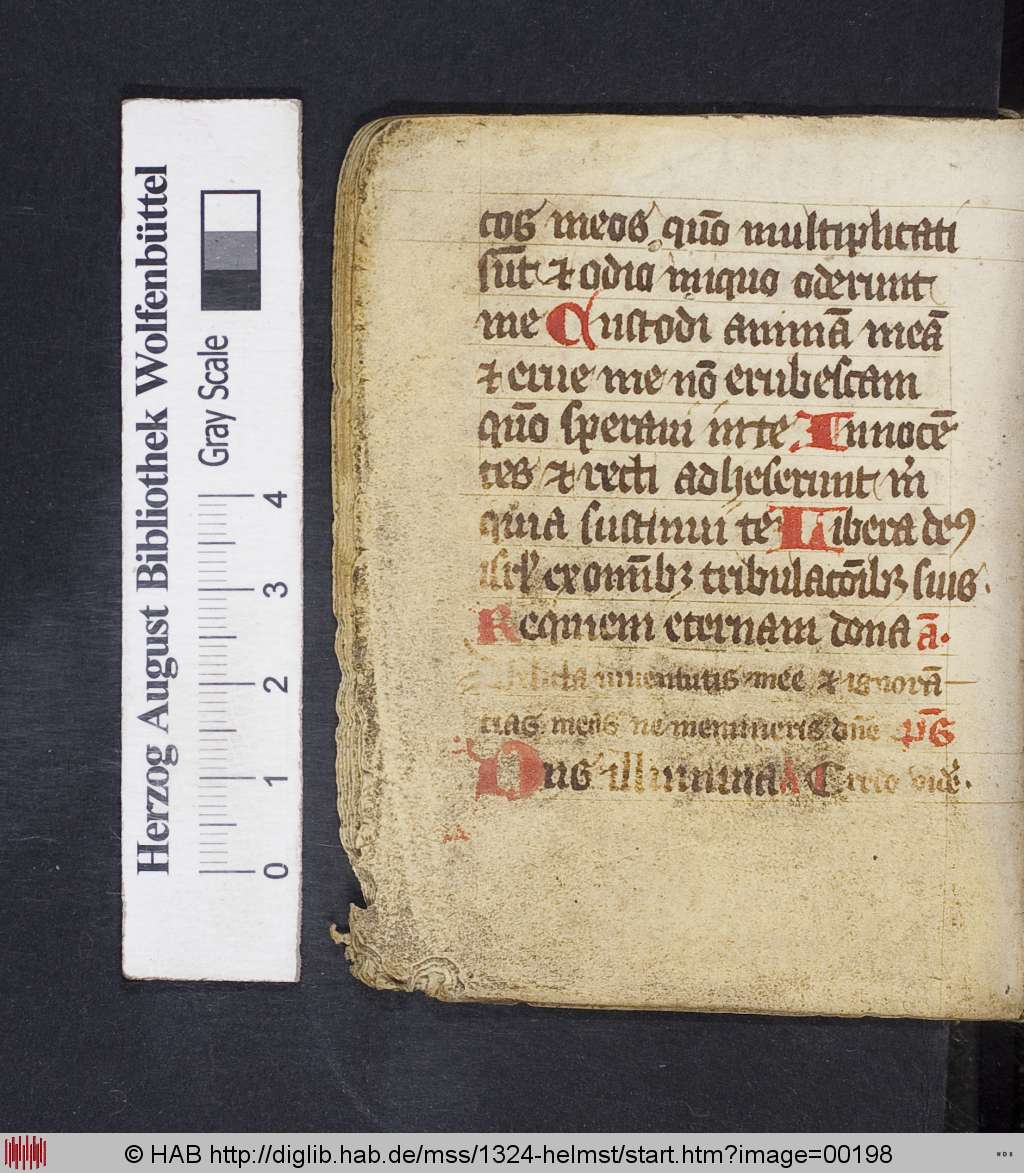 cos meos quō multiplicati
sūt & odio iniquo oderunt
me Custodi animā meā
& erue me nō erubescam
quō speraui in te Innocē
tes & recti adheserunt m̄
quia sustinui te Libera deꝰ
isrl̄ ex omībꝫ tribulacōībꝫ suis.
Requiem eternam dona ā.
Delicta iuuentutis mee & ignorā
cias meas ne memineris dn̄e p̄s
Dn̄s illumina Credo vidē.
Herzog August Bibliothek Wolfenbüttel
Gray Scale
0 1 2 3 4
© HAB http://diglib.hab.de/mss/1324-helmst/start.htm?image=00198